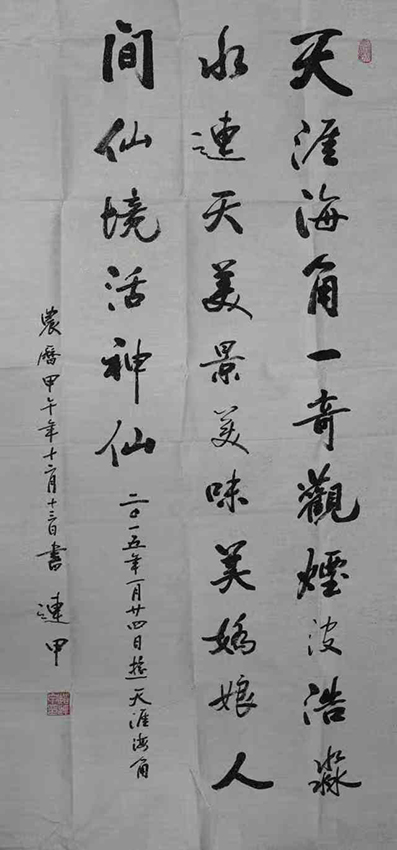 天涯海角一奇觀煙波浩淼
水連天美景美味美嬌娘人
间仙境活神仙
二〇一五年一月廿四日遊天涯海角
農曆甲午年十二月十三日書 連甲